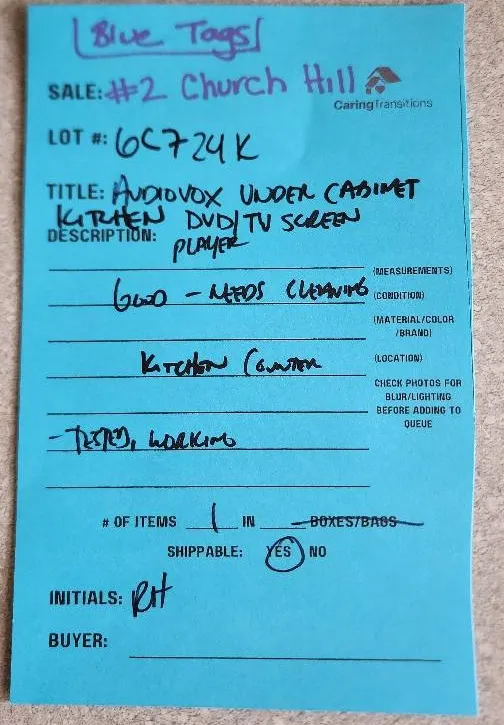 Blue Tags
SALE: #2 Church Hill
CaringTransitions
LOT #: 6C724K
TITLE: AUDIOVOX UNDER CABINET
KITCHEN DVD/TV SCREEN
DESCRIPTION: PLAYER
(MEASUREMENTS)
GOOD - NEEDS CLEANING (CONDITION)
(MATERIAL/COLOR
/BRAND)
KITCHEN COUNTER (LOCATION)
CHECK PHOTOS FOR
BLUR/LIGHTING
BEFORE ADDING TO
QUEUE
- TESTED, WORKING
# OF ITEMS 1 IN BOXES/BAGS
SHIPPABLE: YES NO
INITIALS: RH
BUYER: